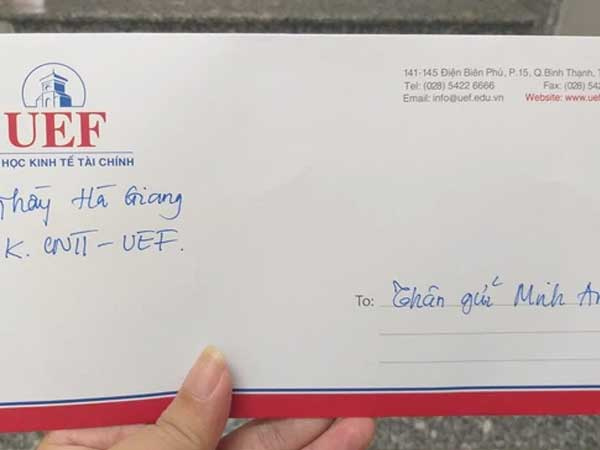 UEF
HỌC KINH TẾ TÀI CHÍNH
Thầy Hà Giang
K. CNTT - UEF.
141-145 Điện Biên Phủ, P.15, Q.Bình Thạnh, T
Tel: (028) 5422 6666 Fax: (028) 542
Email: info@uef.edu.vn Website: www.uef
To: Thân gửi Minh An